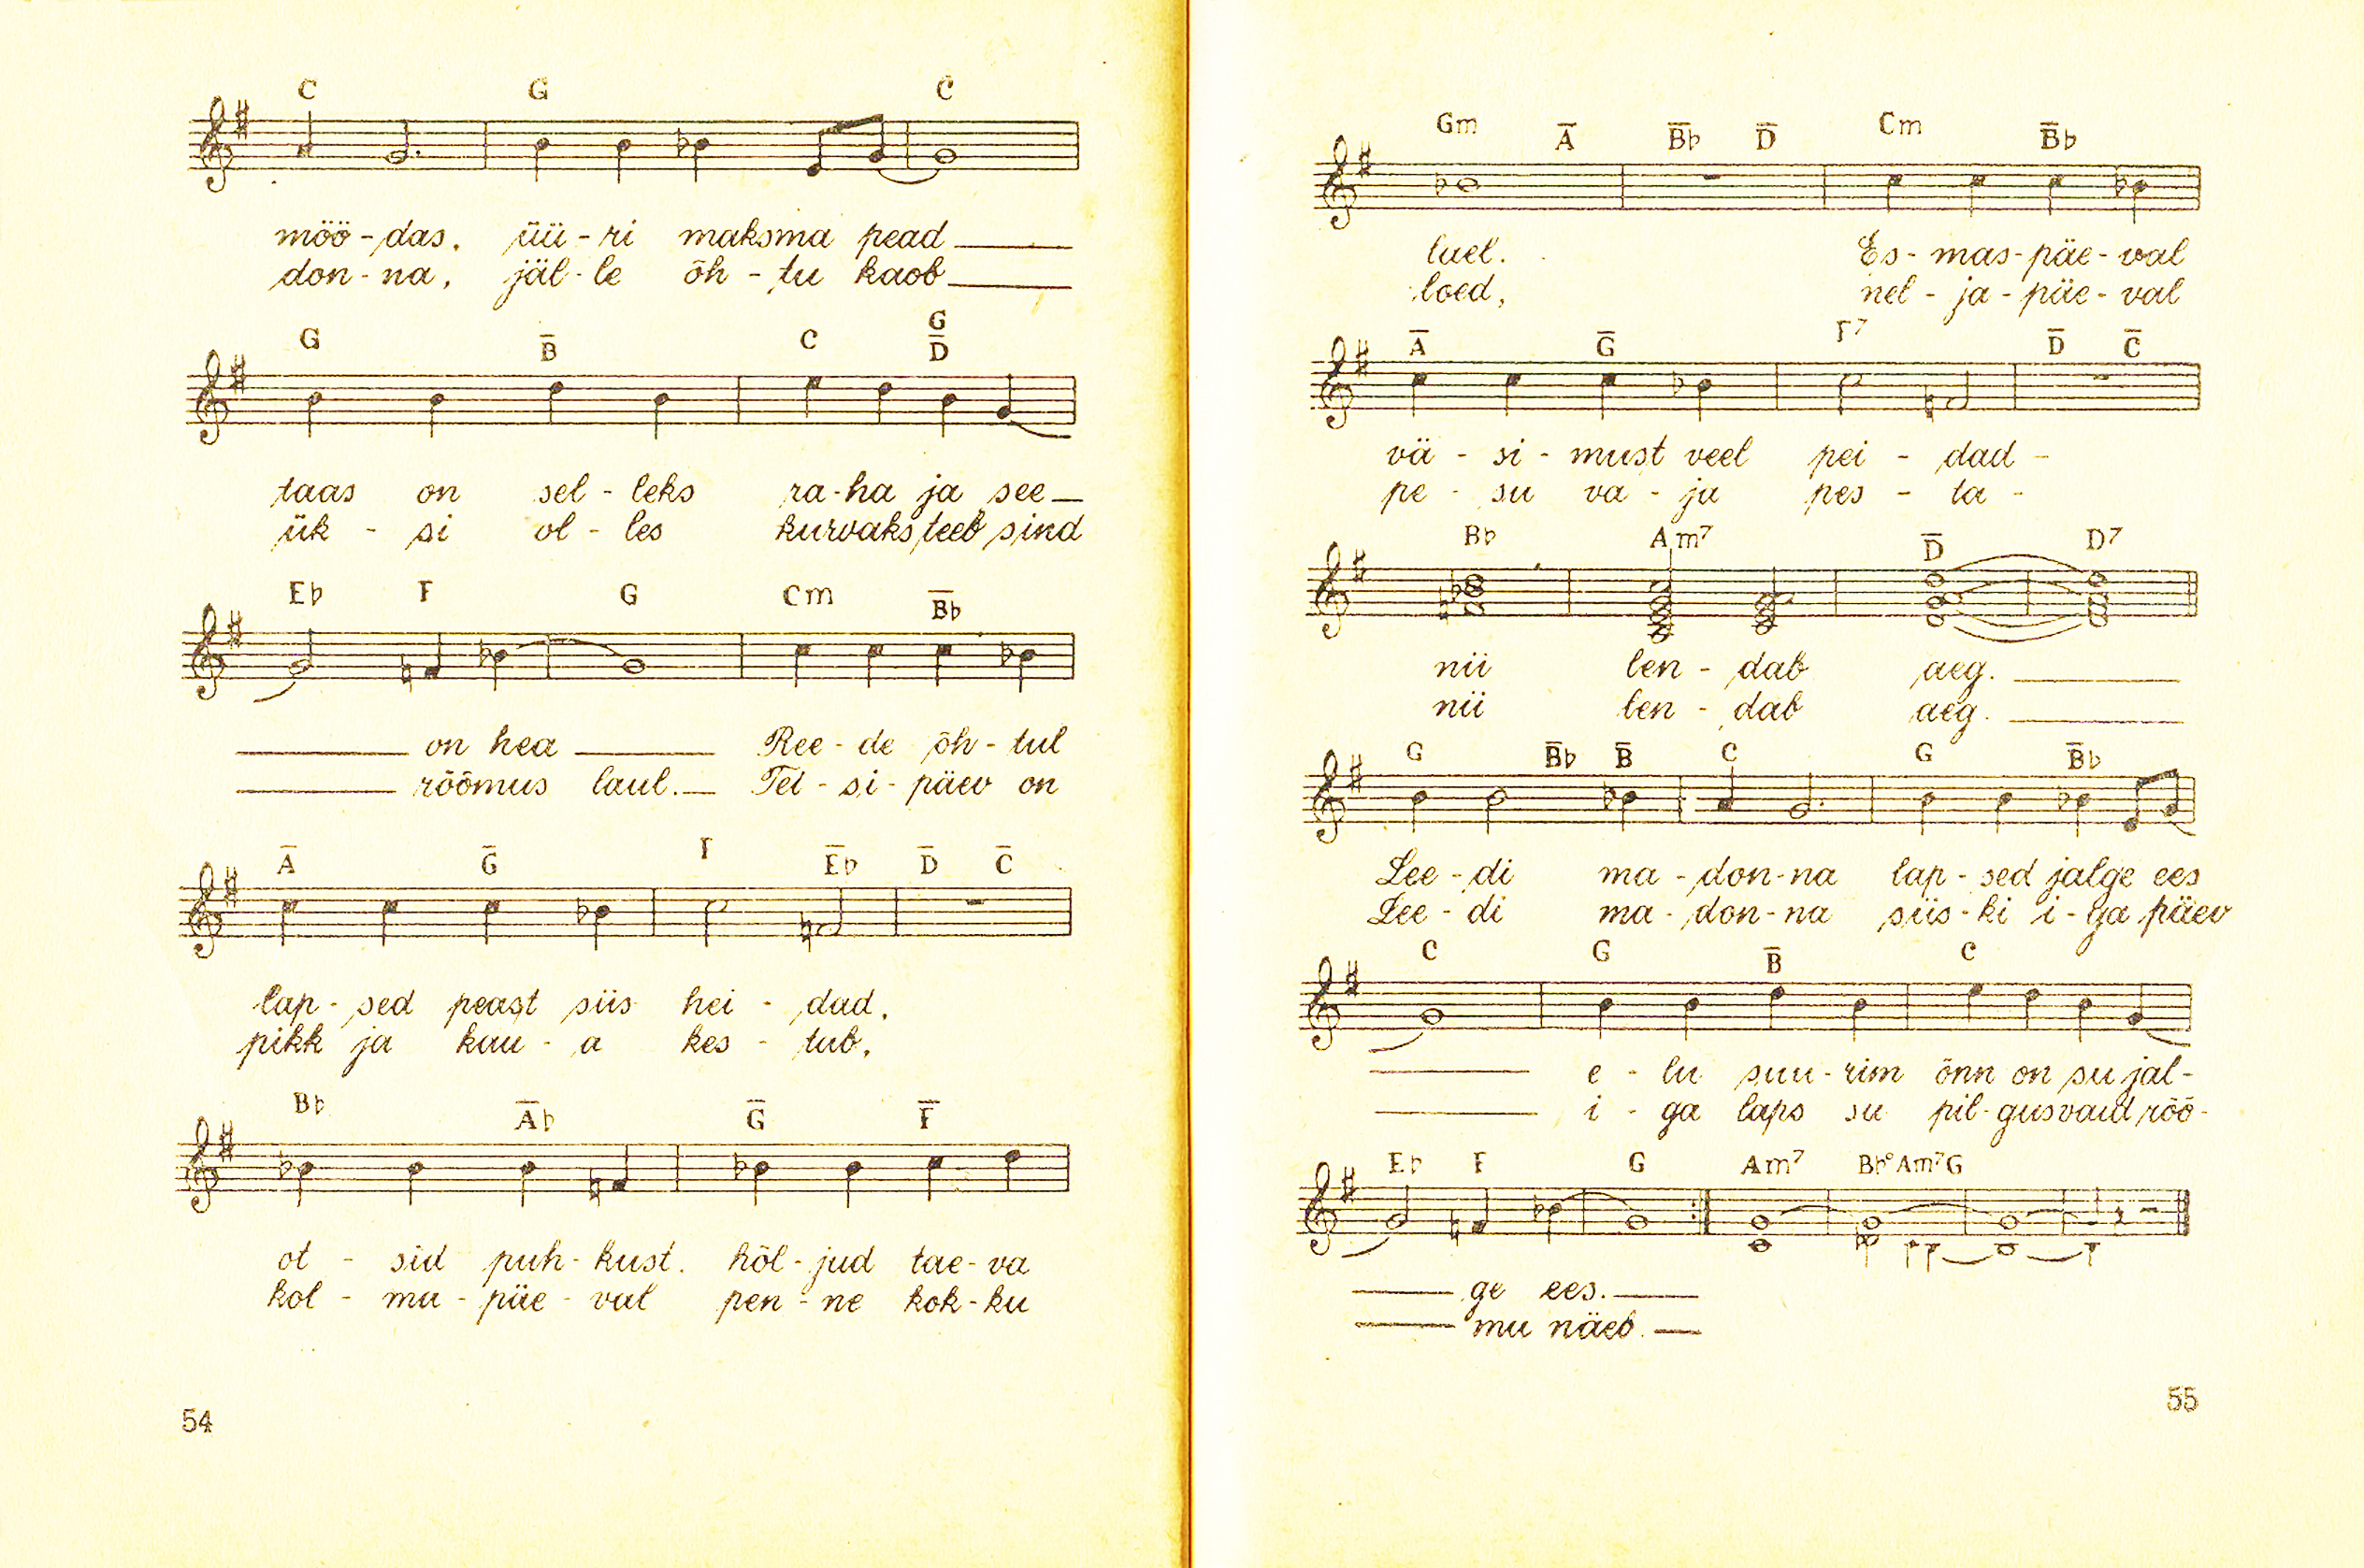 C G C
möö-das, üü-ri maksma pead
don-na, jäl-le õh-tu kaob
G B C G D
taas on sel-leks ra-ha ja see
ük-si ol-les kurvaks teeb sind
E♭ F G Cm B♭
on hea Ree-de õh-tul
rõõmus laul. Tei-si-päev on
A G F E♭ D C
lap-sed peast siis hei-dad,
pikk ja kau-a kes-tub,
B♭ A♭ G F
ot-sid puh-kust. hõl-jud tae-va
kol-ma-päe-val pen-ne kok-ku
54
Gm A B♭ D Cm B♭
luel. Es-mas-päe-val
loed, nel-ja-päe-val
A G F7 D C
vä-si-must veel pei-dad-
pe-su va-ja pes-ta-
B♭ Am7 D D7
nii len-dab aeg.
nii len-dab aeg.
G B♭ B C G B♭
Lee-di ma-don-na lap-sed jalge ees
Lee-di ma-don-na siis-ki i-ga päev
C G B C
e-lu suu-rim õnn on su jal-
i-ga laps su pil-gus vaid rõõ-
E♭ F G Am7 B♭° Am7 G
ge ees.
mu näeb.
55